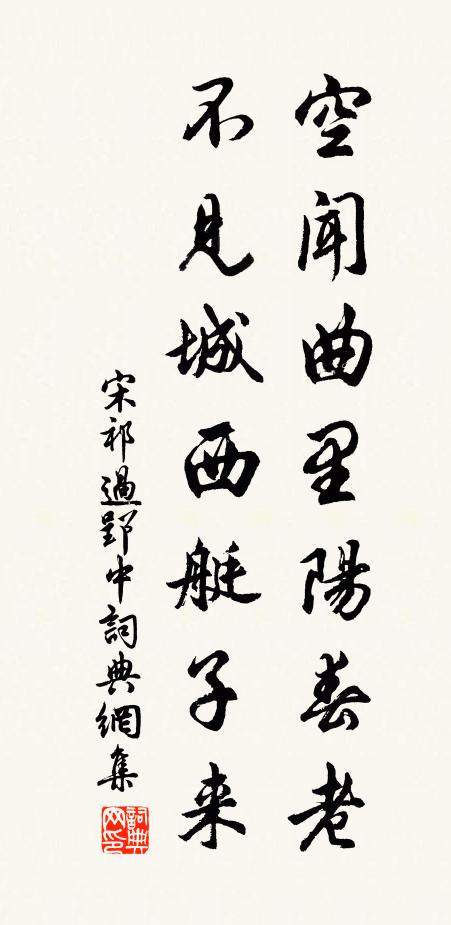 空聞曲里陽春老
不見城西艇子来
宋祁過郢中詞典網集
詞典网印